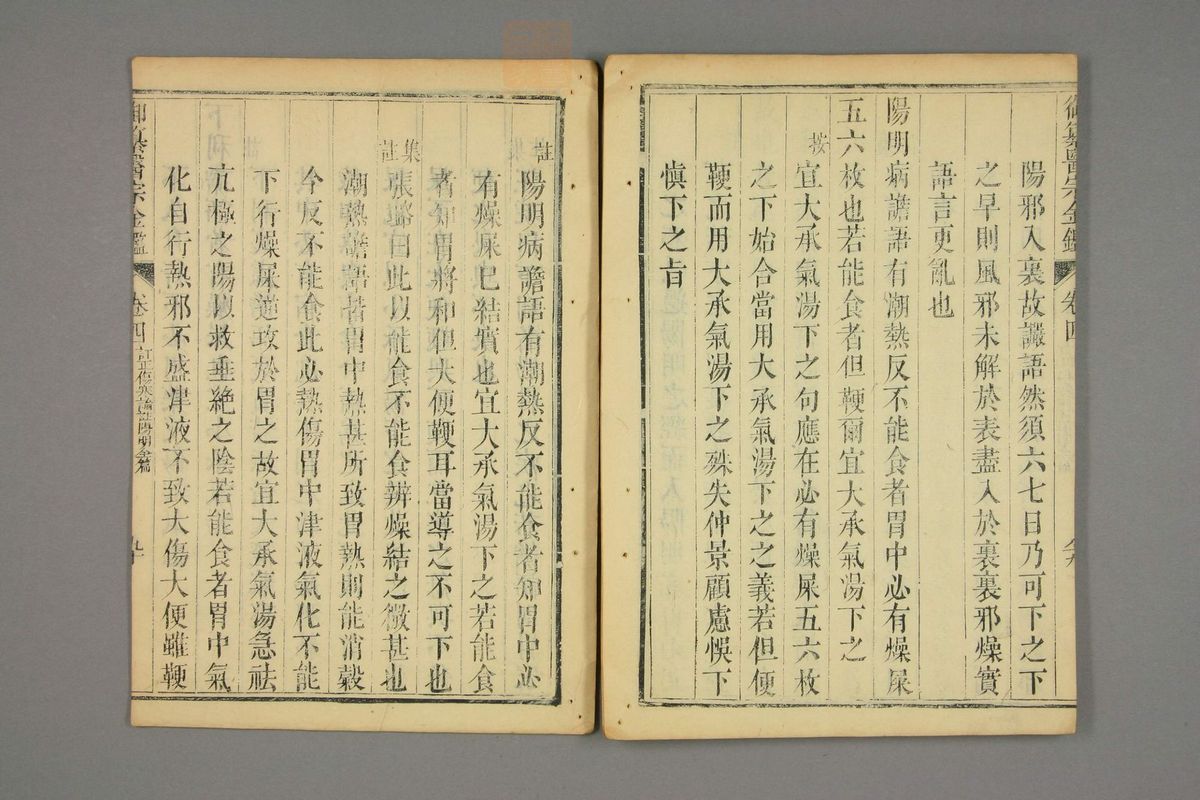 御纂醫宗金鑑 卷四
陽邪入裏故讝語然須六七日乃可下之下
之早則風邪未解於表盡入於裏裏邪燥實
語言更亂也
陽明病譫語有潮熱反不能食者胃中必有燥屎
五六枚也若能食者但鞕爾宜大承氣湯下之
按
宜大承氣湯下之句應在必有燥屎五六枚
之下始合當用大承氣湯下之之義若但便
鞕而用大承氣湯下之殊失仲景顧慮悞下
慎下之旨
註
陽明病譫語有潮熱反不能食者知胃中必
有燥屎已結實也宜大承氣湯下之若能食
者知胃將和但大便鞕耳當導之不可下也
集註
張璐曰此以能食不能食辨燥結之微甚也
潮熱譫語皆胃中熱甚所致胃熱則能消穀
今反不能食此必熱傷胃中津液氣化不能
下行燥屎逆攻於胃之故宜大承氣湯急祛
亢極之陽以救垂絶之陰若能食者胃中氣
化自行熱邪不盛津液不致大傷大便雖鞕
御纂醫宗金鑑 卷四 訂正傷寒論註陽明全篇